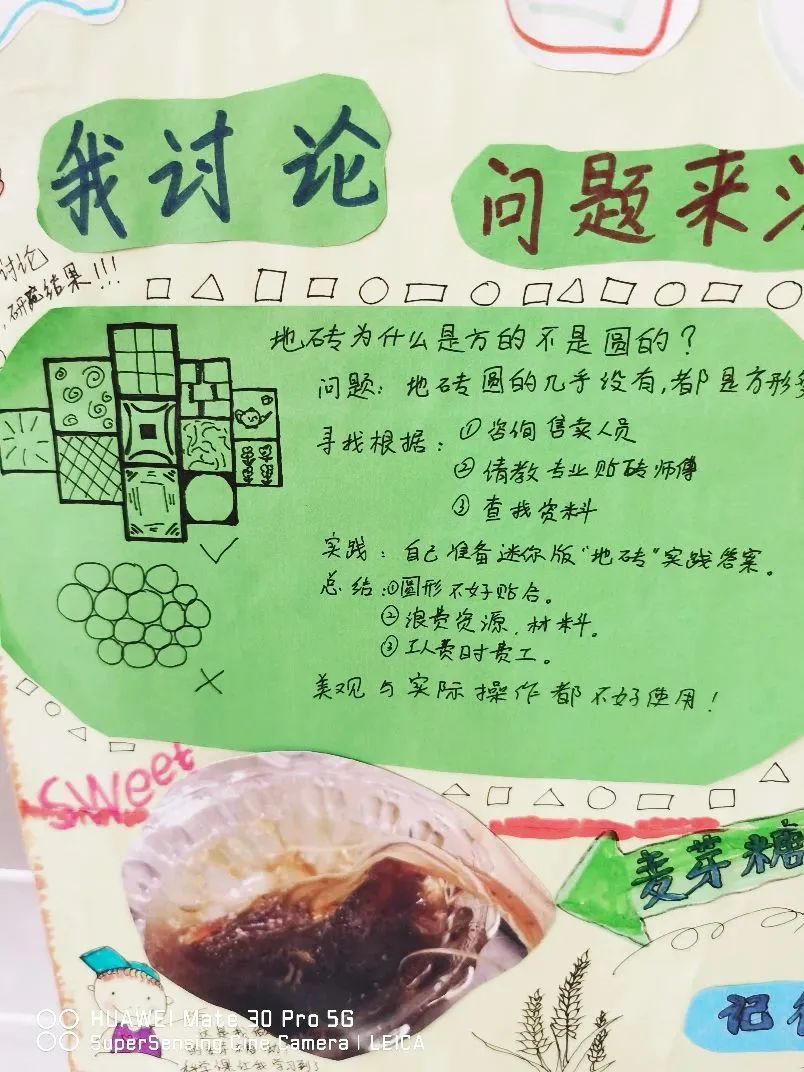 我讨论
问题来
讨论
研究结果!!!
地砖为什么是方的不是圆的?
问题:地砖圆的几乎没有,都是方形
寻找根据:①咨询售卖人员
②请教专业贴砖师傅
③查找资料
实践:自己准备迷你版"地砖"实践答案。
总结:①圆形不好贴合。
②浪费资源,材料。
③工人费时费工。
美观与实际操作都不好使用!
sweet
麦芽糖
记
科学课让我学习到了
HUAWEI Mate 30 Pro 5G
SuperSensing Cine Camera | LEICA